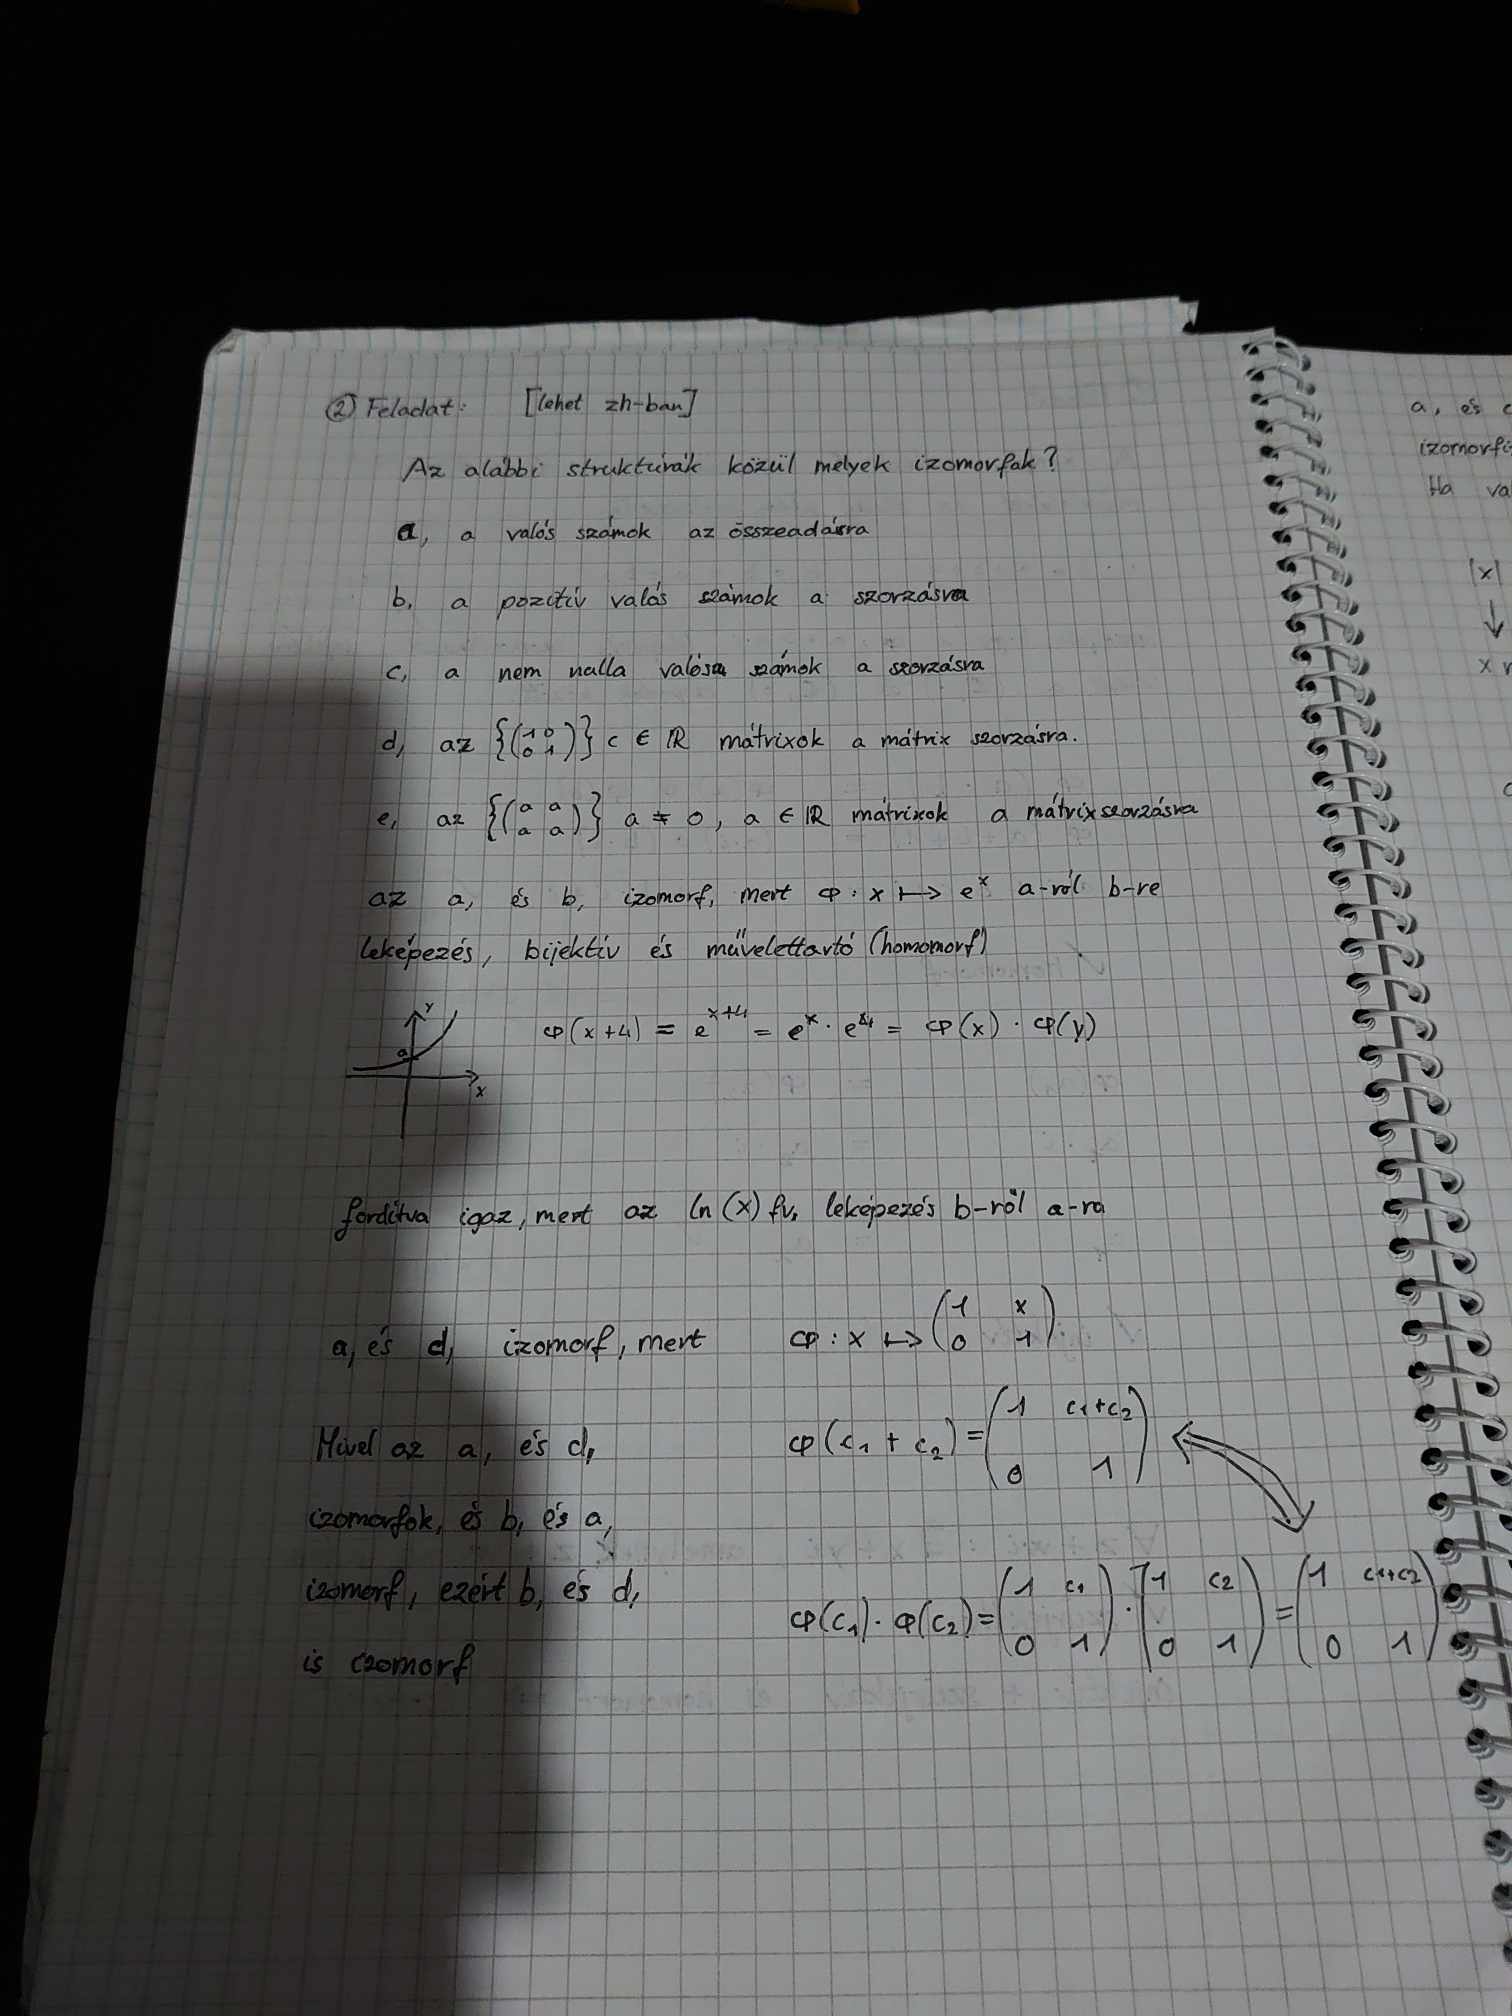 ② Feladat: [lehet zh-ban]
Az alábbi struktúrák közül melyek izomorfak?
a, a valós számok az összeadásra
b, a pozitív valós számok a szorzásra
c, a nem nulla valós számok a szorzásra
d, az {(1 0 0 1)} c ∈ ℝ mátrixok a mátrix szorzásra.
e, az {(a a a a)} a ≠ 0, a ∈ ℝ mátrixok a mátrixszorzásra
az a, és b, izomorf, mert φ: x ↦ e^x a-ról b-re
leképezés, bijektív és művelettartó (homomorf)
y
a
x
φ(x+4) = e^(x+4) = e^x · e^4 = φ(x) · φ(y)
fordítva igaz, mert az ln(x) fv. leképezés b-ről a-ra
a, és d, izomorf, mert φ: x ↦ (1 x 0 1)
Mivel az a, és d,
izomorfok, és b, és a,
izomorf, ezért b, és d,
is izomorf
φ(c₁ + c₂) = (1 c₁+c₂ 0 1)
φ(c₁) · φ(c₂) = (1 c₁ 0 1) · (1 c₂ 0 1) = (1 c₁+c₂ 0 1)
a, és
Ha
|x|
↓
x